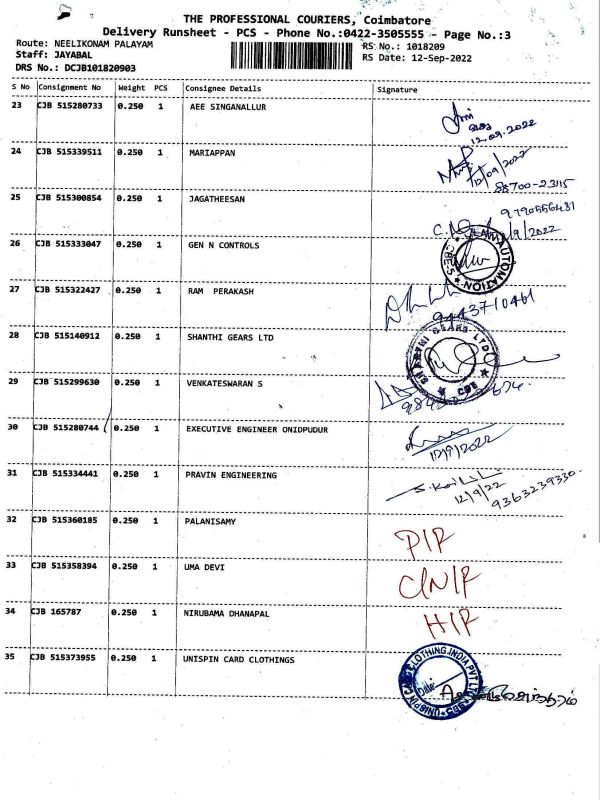 THE PROFESSIONAL COURIERS, Coimbatore
Delivery Runsheet - PCS - Phone No.:0422-3505555 - Page No.:3
Route: NEELIKONAM PALAYAM
RS No.: 1018209
Staff: JAYABAL
RS Date: 12-Sep-2022
DRS No.: DCJB101820903
S No Consignment No Weight PCS Consignee Details Signature
23 CJB 515280733 0.250 1 AEE SINGANALLUR
12.09.2022
24 CJB 515339511 0.250 1 MARIAPPAN
12/09/2022
88700-23115
25 CJB 515300854 0.250 1 JAGATHEESAN
9790556481
/9/2022
26 CJB 515333047 0.250 1 GEN N CONTROLS
AUTOMATION
27 CJB 515322427 0.250 1 RAM PERAKASH
9443710461
28 CJB 515140912 0.250 1 SHANTHI GEARS LTD
SHANTHI GEARS LTD
CBE
29 CJB 515299630 0.250 1 VENKATESWARAN S
30 CJB 515280744 0.250 1 EXECUTIVE ENGINEER ONIDPUDUR
12/9/2022
31 CJB 515334441 0.250 1 PRAVIN ENGINEERING
12/9/22
9363239330
32 CJB 515360185 0.250 1 PALANISAMY
P/R
33 CJB 515358394 0.250 1 UMA DEVI
C/N/R
34 CJB 165787 0.250 1 NIRUBAMA DHANAPAL
H/R
35 CJB 515373955 0.250 1 UNISPIN CARD CLOTHINGS
UNISPIN CARD CLOTHING INDIA PVT LTD
Date: